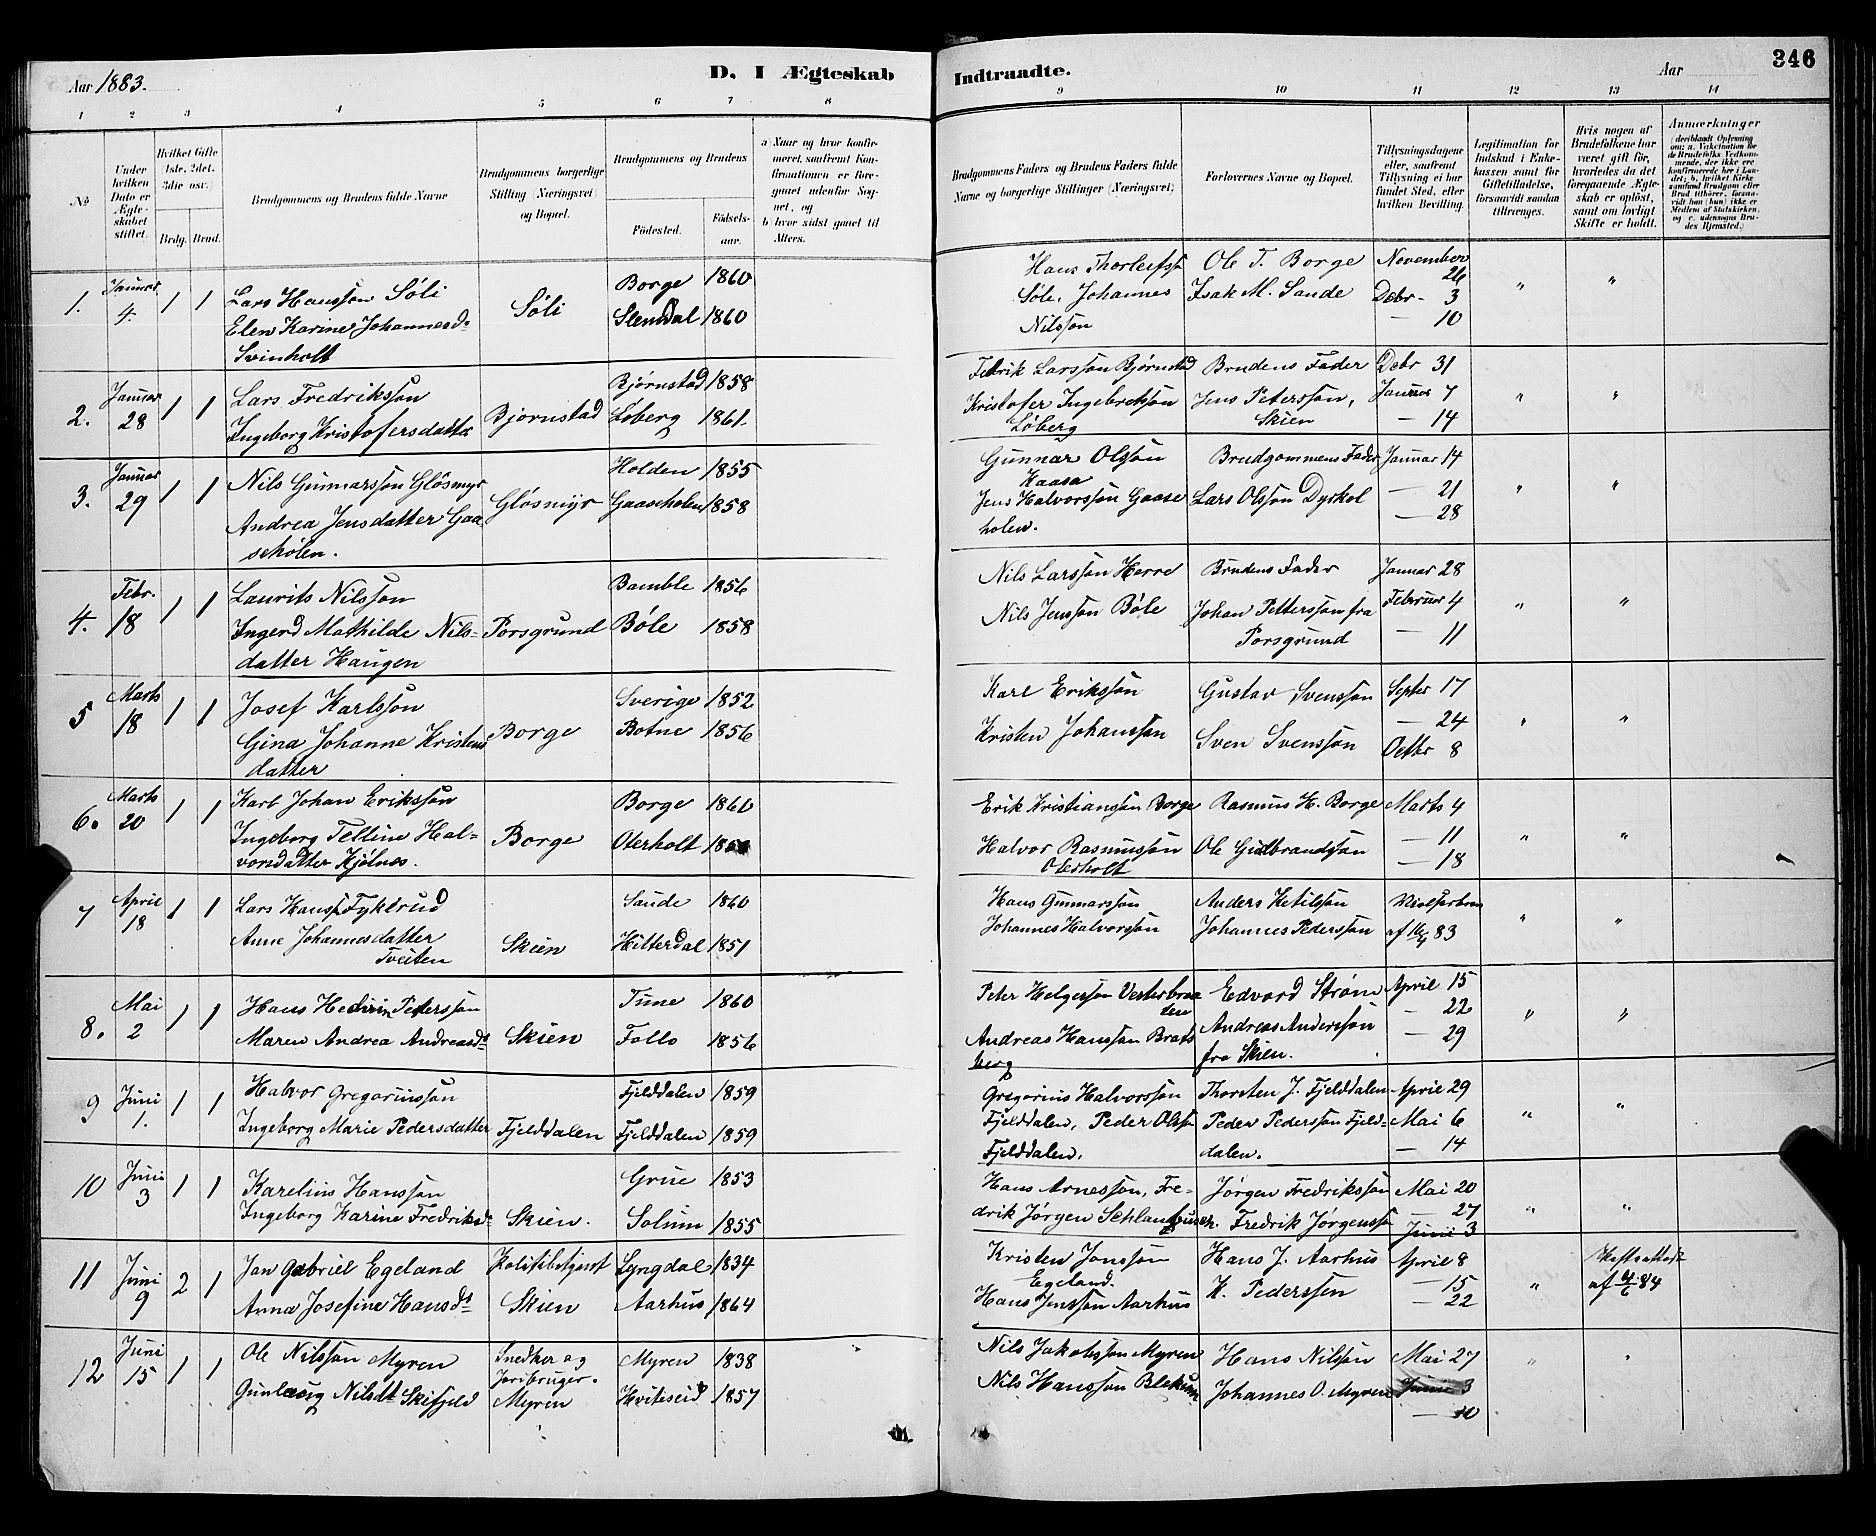 Aar 1883.
D. I Ægteskab
Indtraadte.
Aar
346
1 2 3 4 5 6 7 8 9 10 11 12 13 14
No
Under hvilken Dato er Ægteskabet stiftet.
Hvilket Gifte (1ste, 2det, 3die osv.)
Brdg. Brud.
Brudgommens og Brudens fulde Navne
Brudgommens borgerlige Stilling (Næringsvei) og Bopæl.
Brudgommens og Brudens
Fødested.
Fødselsaar.
a Naar og hvor konfirmeret, saafremt Konfirmationen er foregaaet udenfor Sognet, og
b hvor sidst gaaet til Alters.
Brudgommens Faders og Brudens Faders fulde Navne og borgerlige Stillinger (Næringsvei)
Forlovernes Navne og Bopæl.
Tillysningsdagene eller, saafremt Tillysning ei har fundet Sted, efter hvilken Bevilling.
Legitimation for Indskud i Enkekassen samt for Giftetilladelse, forsaavidt saadan tiltrænges.
Hvis nogen af Brudefolkene har været gift før, hvorledes da det foregaaende Ægteskab er opløst, samt om lovligt Skifte er holdt.
Anmærkninger
1. Januar 4. 1 1 Lars Hansson Søli
Elen Karine Johannesd. Svinholt
Søli
Borge 1860
Slemdal 1860
Hans Thorleifss. Søle, Johannes Nilsson
Ole T. Borge
Isak M. Sande
November 26
Debr. 3
— 10
" "
2. Januar 28 1 1 Lars Fredriksson
Ingeborg Kristofersdatter
Bjørnstad
Bjørnstad 1858
Løberg 1861.
Fedrik Larsson Bjørnstad
Kristofer Ingebretsson Løberg
Brudens Fader
Jens Petersson, Skien
Debr 31
Januar 7
— 14
" "
3. Januar 29 1 1 Nils Gunnarsson Gløsmyr
Andrea Jensdatter Gaaseholen.
Gløsmyr
Holden 1855
Gaaseholen 1858
Gunnar Olsson Kaasa
Jens Halvorsson Gaaseholen.
Brudgommens Fader
Lars Olsson Dyrkol
Januar 14
— 21
— 28
" "
4. Febr. 18 1 1 Laurits Nilsson
Ingerd Mathilde Nilsdatter Haugen
Porsgrund
Bamble 1856
Bøle 1858
Nils Larsson Herre
Nils Jensson Bøle
Brudens Fader
Johan Pettersson fra Porsgrund
Januar 28
Februar 4
— 11
" "
5 Marts 18 1 1 Josef Karlsson
Gina Johanne Kristensdatter
Borge
Sverige 1852
Botne 1856
Karl Eriksson
Kristen Johansson
Gustav Svensson
Sven Svensson
Septer 17
— 24
Octbr 8
" "
6. Marts 20 1 1 Karl Johan Eriksson
Ingeborg Telline Halvorsdatter Kjølnes.
Borge
Borge 1860
Oterholt
Erik Kristiansson Borge
Halvor Rasmusson Oterholt
Rasmus H. Borge
Ole Gulbrandsson
Marts 4
— 11
— 18
" "
7 April 18 1 1 Lars Hanss. Fykerud
Anne Johannesdatter Tveiten
Skien
Saude 1860
Hitterdal 1851
Hans Gunnarsson
Johannes Halvorsson
Anders Ketilsson
Johannes Pedersson
af 16/4 83
" "
8. Mai 2 1 1 Hans Hedirin Pettersson
Maren Andrea Andreasd.
Skien
Tune 1860
Follo 1856
Peter Helgersson Vesterbraaten
Andreas Hansson Bratsberg
Edvard Strøm
Andreas Andersson fra Skien.
April 15
— 22
— 29
" "
9 Juni 1. 1 1 Halvor Gregoriusson
Ingeborg Marie Pedersdatter
Fjelddalen
Fjelddalen 1859
Fjelddalen 1859
Gregorius Halvorsson Fjelddalen, Peder Olss. Fjelddalen.
Thorsten J. Fjelddalen
Peder Pedersson Fjelddalen.
April 29
Mai 6
— 14
" "
10 Juni 3 1 1 Karelius Hansson
Ingeborg Karine Fredriksd.
Skien.
Grue 1853
Solum 1855
Hans Arnesson, Fredrik Jørgen Schlanbusch.
Jørgen Fredriksson
Fredrik Jørgenss.
Mai 20
— 27
Juni 3
" "
11 Juni 9 2 1 Jan Gabriel Egeland
Anna Josefine Hansd.
Politibetjent
Skien
Lyngdal 1834
Aarhus 1864
Kristen Jonsson Egeland.
Hans Jensson Aarhus
Hans J. Aarhus
K. Pederssen
April 8
— 15
— 22
"
Skifteattest
af 4/6 84
12 Juni 15 1 1 Ole Nilsson Myren
Gunlaug Nilsdt. Skifjeld
Snedker og Jordbruger.
Myren
Myren 1838
Hviteseid 1857
Nils Jakobsson Myren
Nils Hansson Blekum
Hans Nilsson
Johannes O. Myren
Mai 27
Juni 3
— 10
" "